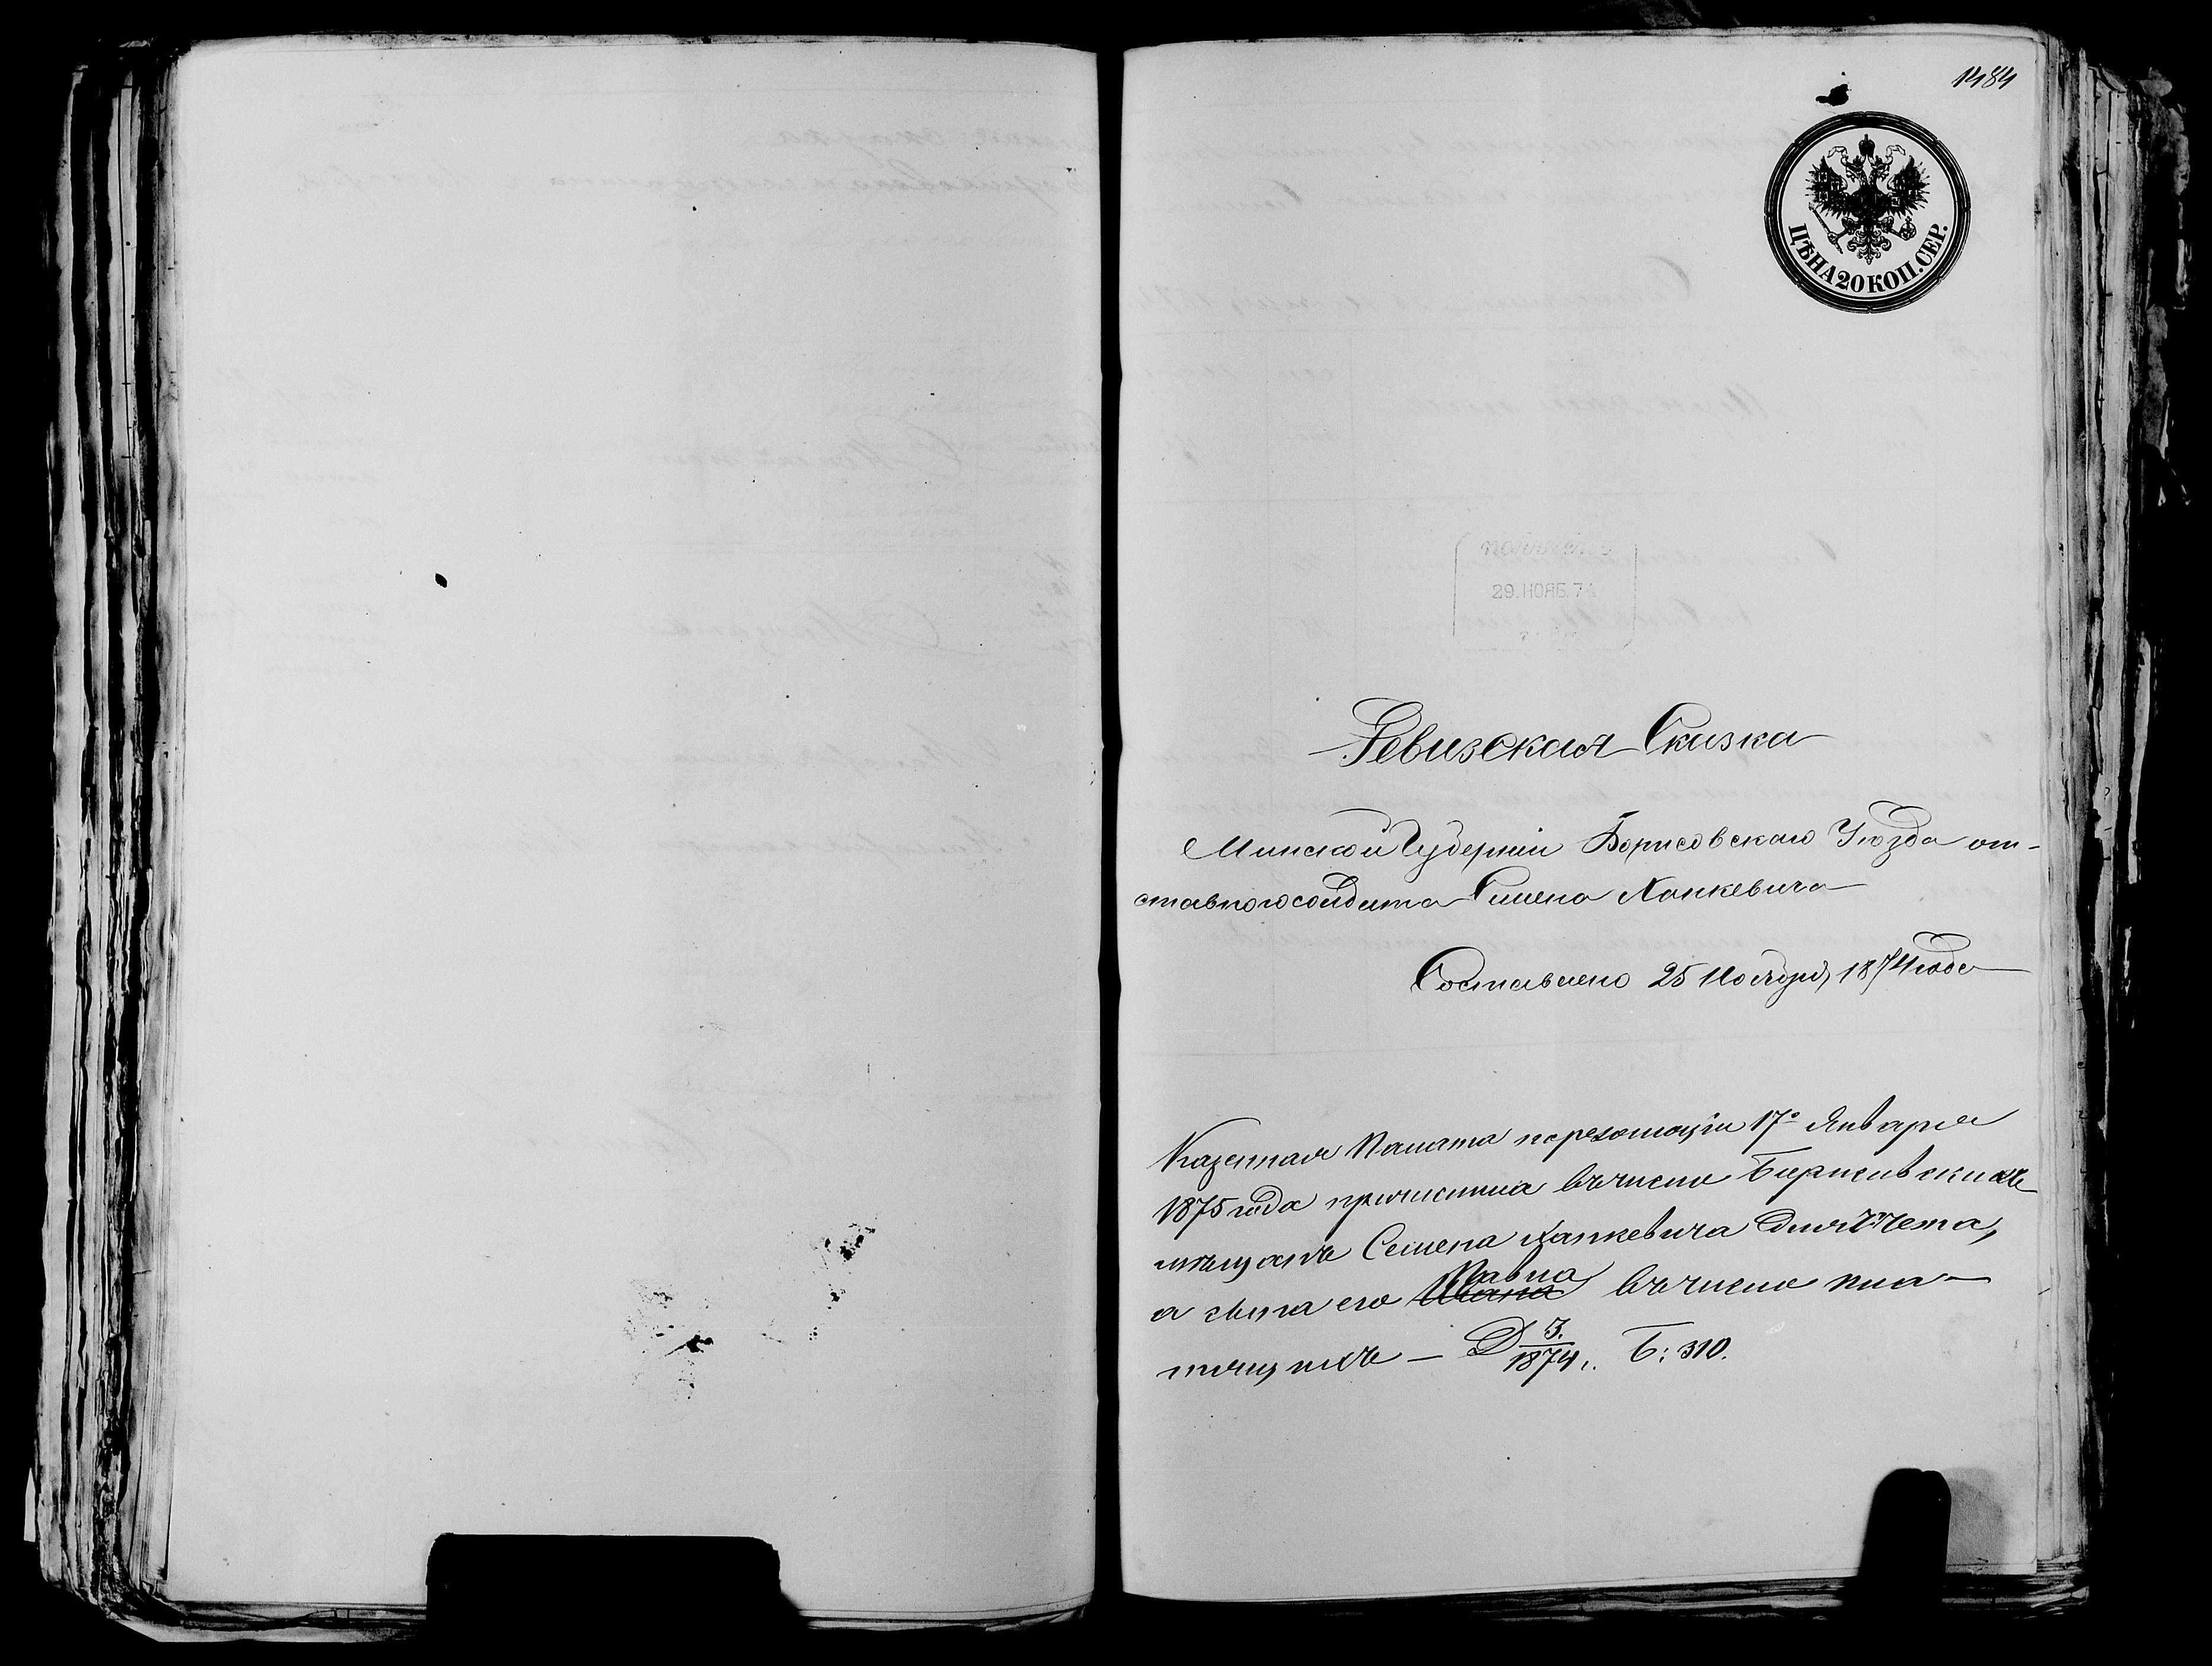 1484
ЦѢНА 20 КОП. СЕР.
29. НОЯБ. 74
Ревизская Сказка
Минской Губерніи Борисовскаго Уѣзда от-
ставного солдата Симена Ханкевича
Составлено 25 Ноября 1874 года
Казенная Палата по резолюціи 17º Января
1875 года причислила въ число Борисовскихъ
мѣщанъ Семена Ханкевича для счета,
а сына его Ивана Павла въ число пла-
тящихъ — Д 3./1874. Б: 310.